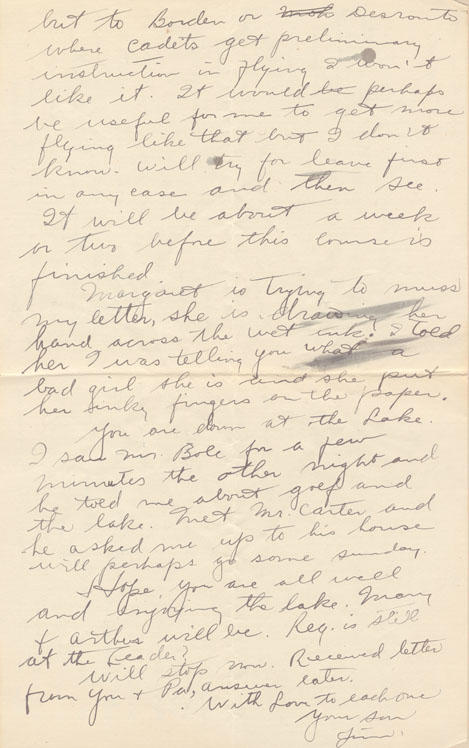 but to Borden or Desronto
where cadets get preliminary
instruction in flying I won't
like it. It would be perhaps
be useful for me to get more
flying like that but I don't
know. Will try for leave first
in any case and then see.
It will be about a week
or two before this course is
finished
Margaret is trying to muss
my letter, she is drawing her
hand across the wet ink. I told
her I was telling you what a
bad girl she is and she put
her inky fingers on the paper.
You are down at the Lake.
I saw Mr. Bole for a few
minutes the other night and
he told me about golf and
the lake. Met Mr. Carter and
he asked me up to his house
will perhaps go some sunday.
I Hope, you are all well
and enjoying the lake. Mary
& Arthur will be. Reg. is still
at the Leader?
Will stop now. Received letter
from You & Pa, answer later.
With Love to each one
Your son
Jim.